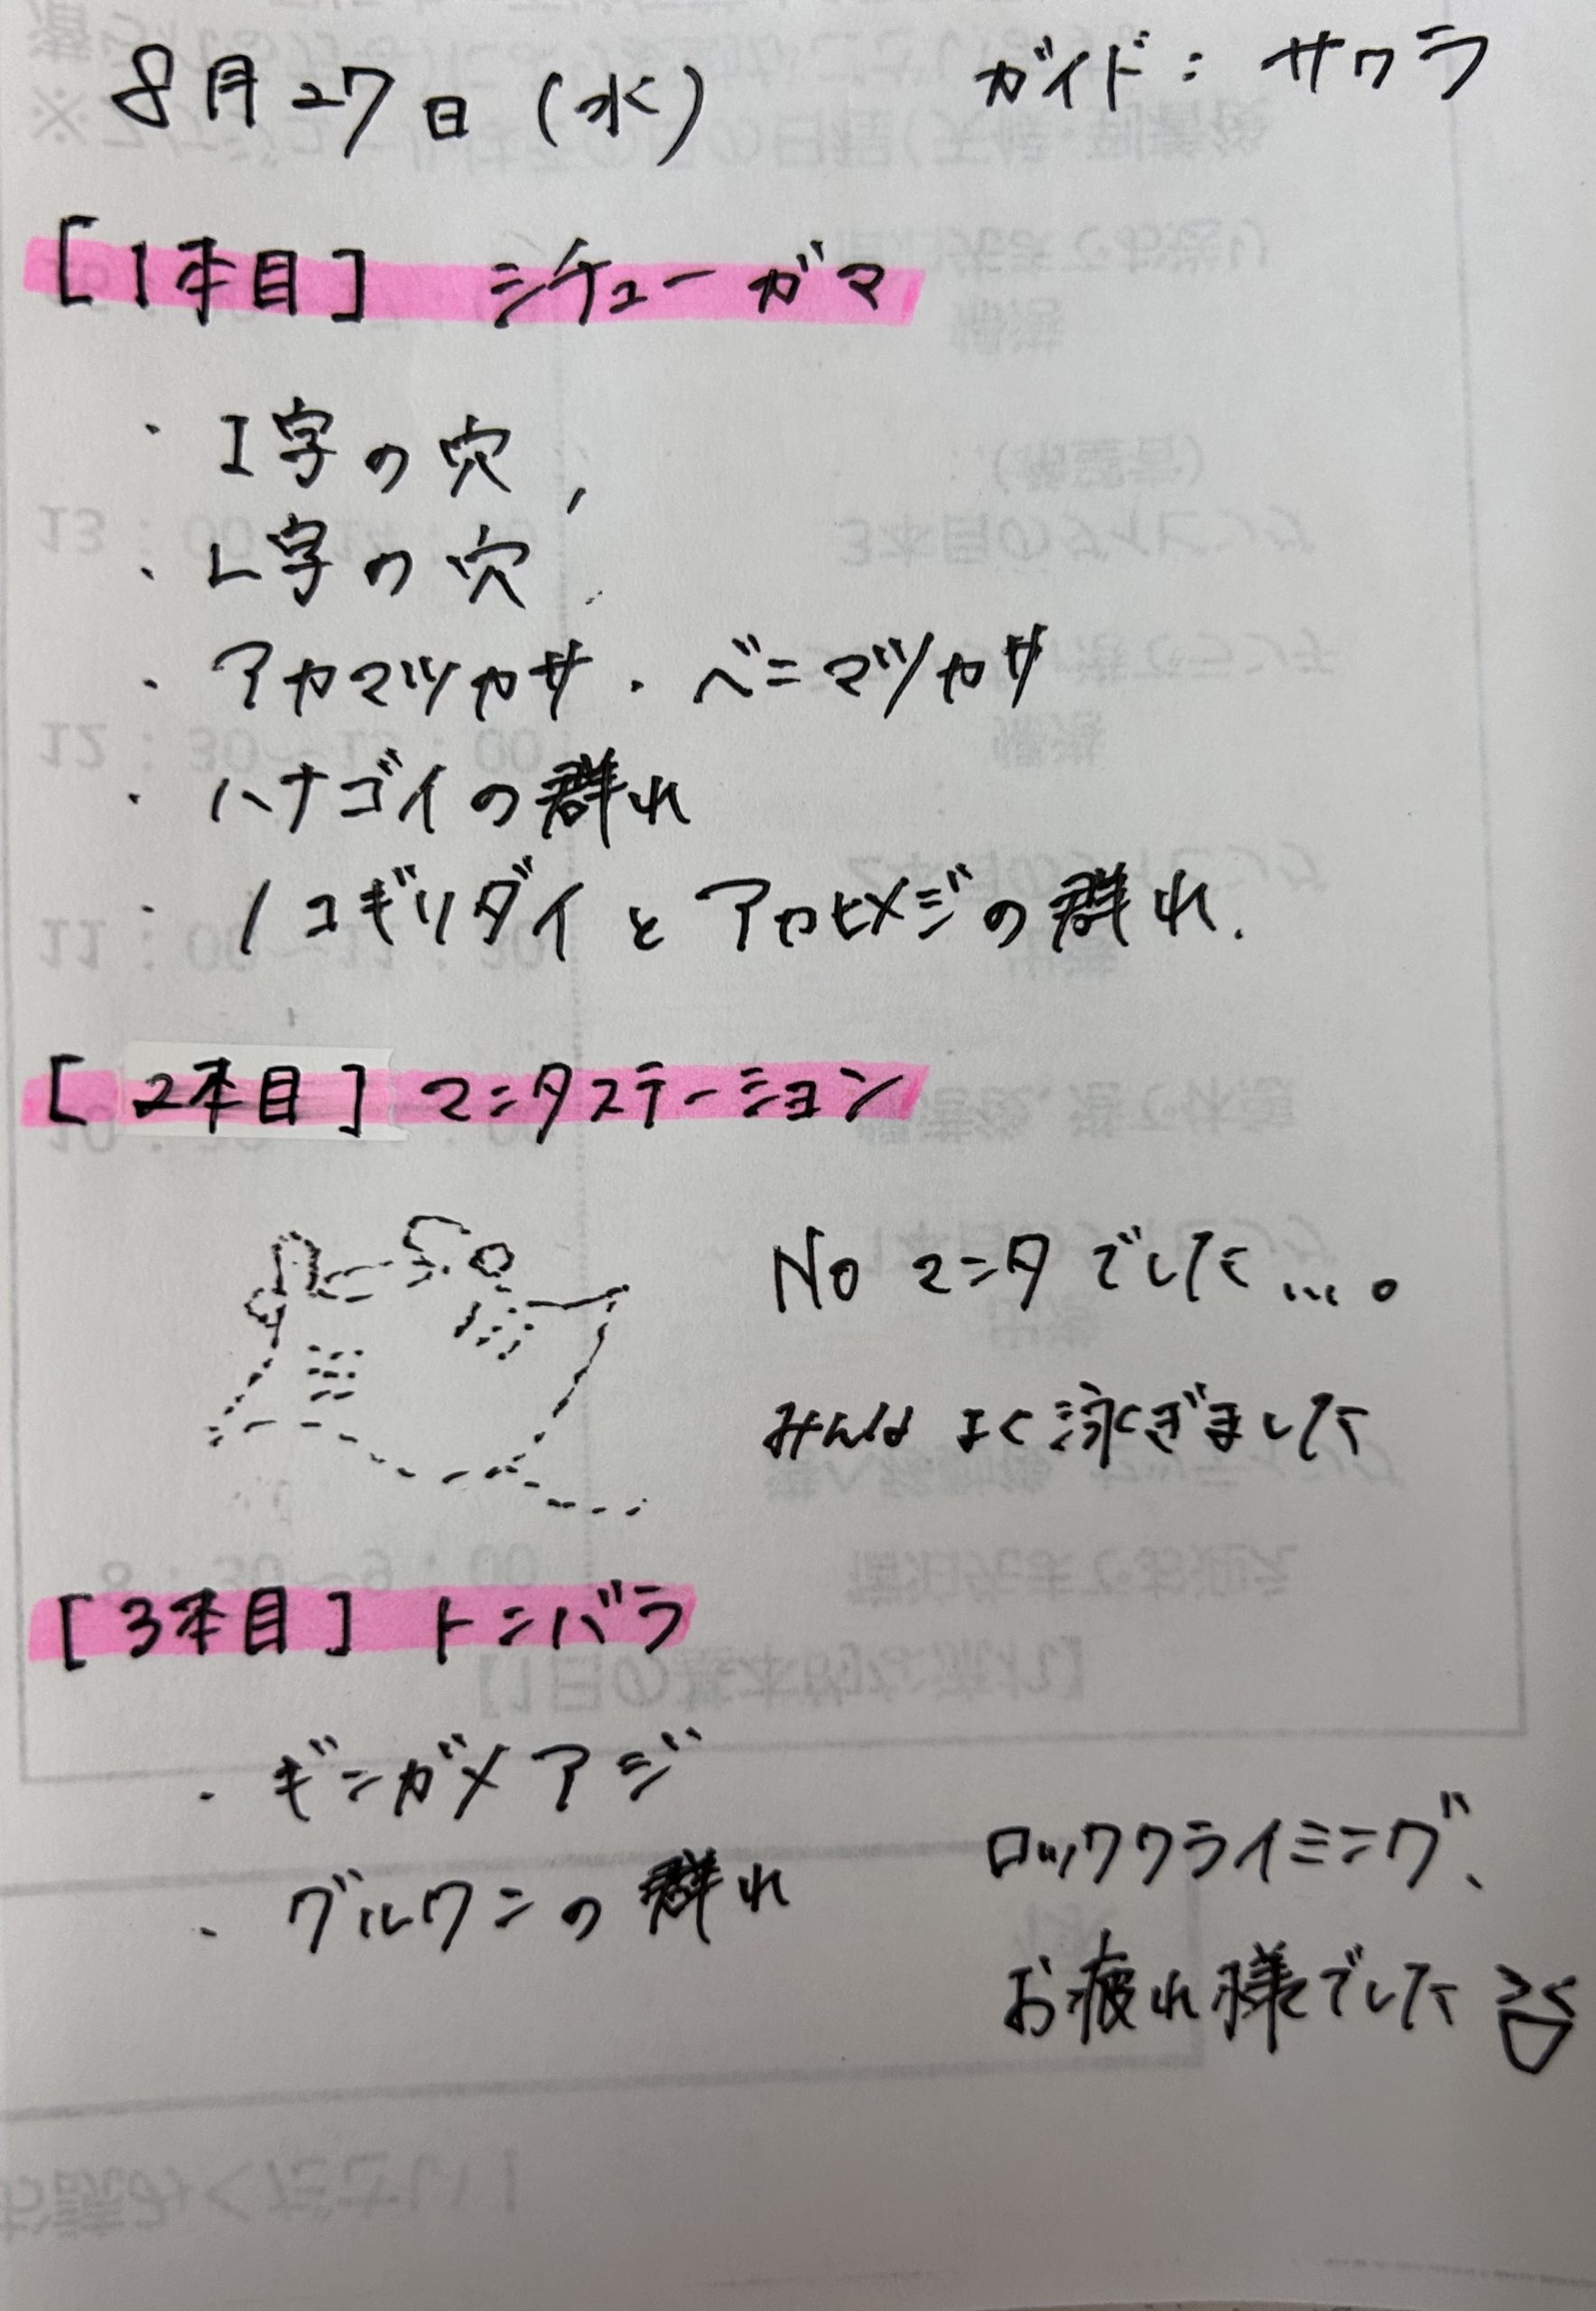 8月27日（水） ガイド：サクラ
[1本目] シチューガマ
・I字の穴,
・L字の穴
・アカマツカサ・ベニマツカサ
・ハナゴイの群れ
・ノコギリダイとアカヒメジの群れ.
[2本目] マンタステーション
No マンタでした...。
みんなよく泳ぎました
[3本目] トンバラ
・ギンガメアジ
・グルクンの群れ
ロッククライミング、
お疲れ様でした